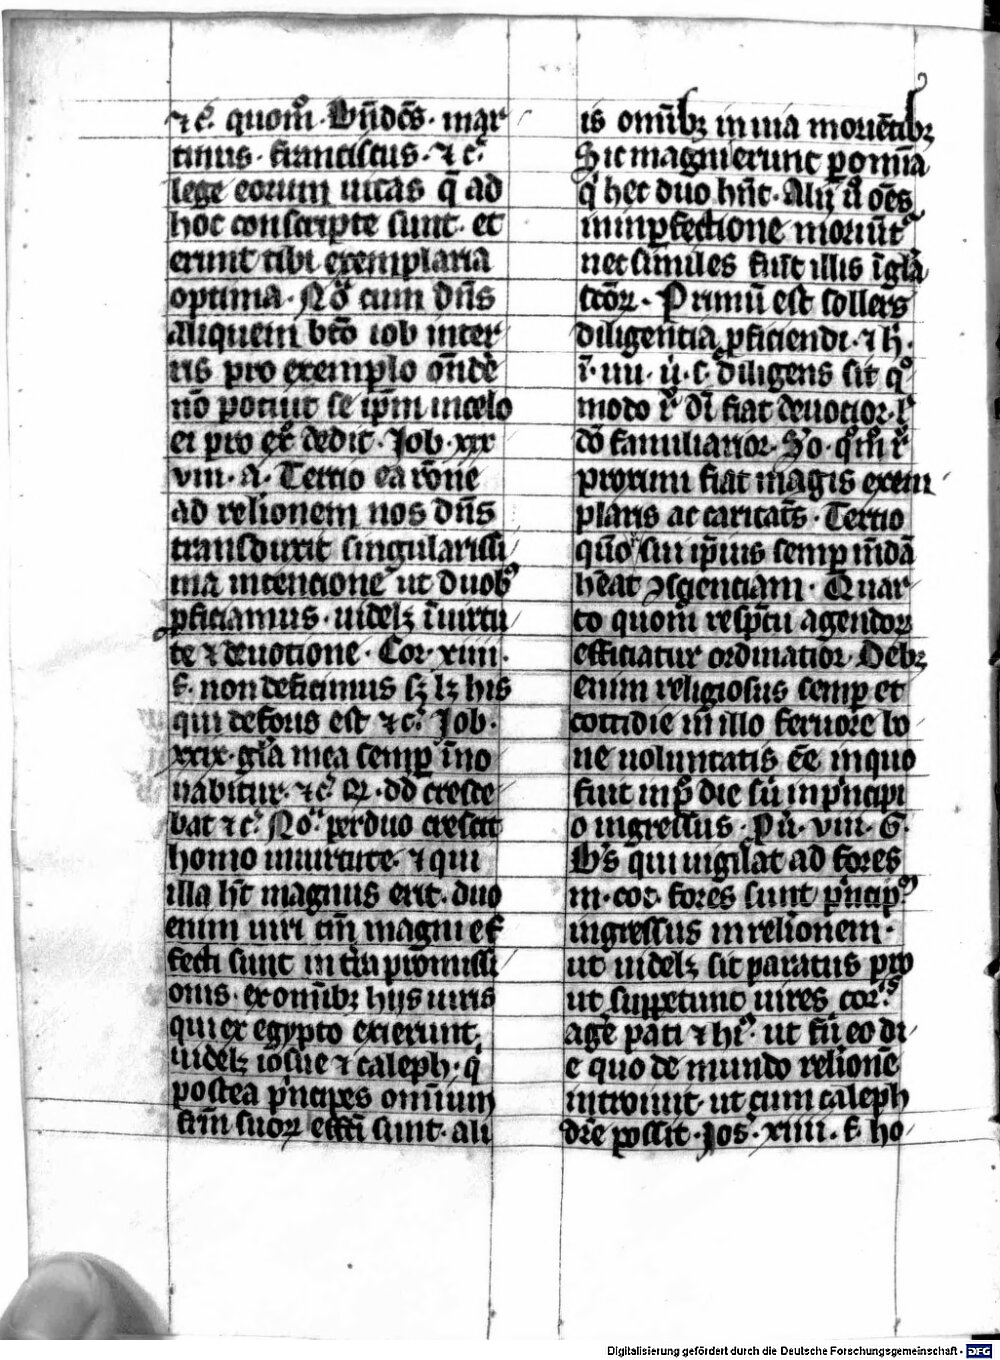 ⁊ c̃. quom̊. Bñdc̄s. mar
tinus. franciscus. ⁊ c̃.
lege eorum uitas q̄ ad
hoc conscripte sunt. et
erunt tibi exemplaria
optima. Nō cum dñs
aliquem btō iob inter
ris pro exemplo ōnde
nō potuit se ip̄m in celo
ei pro ex̊ dedit. Job. xxx
viii. a. Tertio ea rōne
ad relionem nos dñs
transduxit singularissi
ma intencione ut duobꝰ
ꝓficiamus. uidelꝫ ī uirtu
te ⁊ deuotione. Cor. xiiii.
f. non deficimus sꝫ lꝫ his
qui deforis est ⁊ c̃. Job.
xxix. gl̄a mea semp̄ īno
uabitur. ⁊ c̃. dd cresce
bat ⁊ c̃. Nō. per duo crescit
homo in uirtute. ⁊ qui
illa hꝫ magnus erit. duo
enim uiri tm̄ magni ef
fecti sunt in tr̄a promissi
onis. ex omībꝫ hijs uiris
qui ex egypto exierunt.
uidelꝫ iosue ⁊ caleph. qͥ
postea pͥncipes omīum
fr̄m suoꝝ effc̄i sunt. ali
is omībꝫ in uia moriētibꝫ
Sic magni erunt ꝑ omīa
qͥ hec duo hn̄t. Alij ū oēs
in imꝑfectione moriūt᷑
nec similes sunt illis ī gl̄a
sc̄oꝝ. Primū est sollers
diligentia ꝓficiendi. ⁊ h̄.
diligens sit qͦ
modo dī fiat deuotior.
dō familiarior. Sͦo. qͦm̊
proximi fiat magis exem
plaris ac caritatis. Tertio
quō sui ip̄ius semꝑ mūdā
hēat ꝯscienciam. Quar
to quom̊ respc̄u agendoꝝ
efficiatur ordinatior. Debꝫ
enim religiosus semꝑ et
cottidie in illo feruore bo
ne uoluntatis eē in quo
fuit in pͥ die sū in pͥncipi
o ingressus. Pū. viii. G.
Bs̄ qui uigilat ad fores
m. cot. fores sunt pͥncip̄
ingressus in relionem.
ut uidelꝫ sit paratus pro
ut suppetunt uires cor.
agē pati ⁊ hī. ut sū eo di
e quo de mundo relionē
introiuit. ut cum caleph
dr̄e possit. Jos. xiiii. f. ho